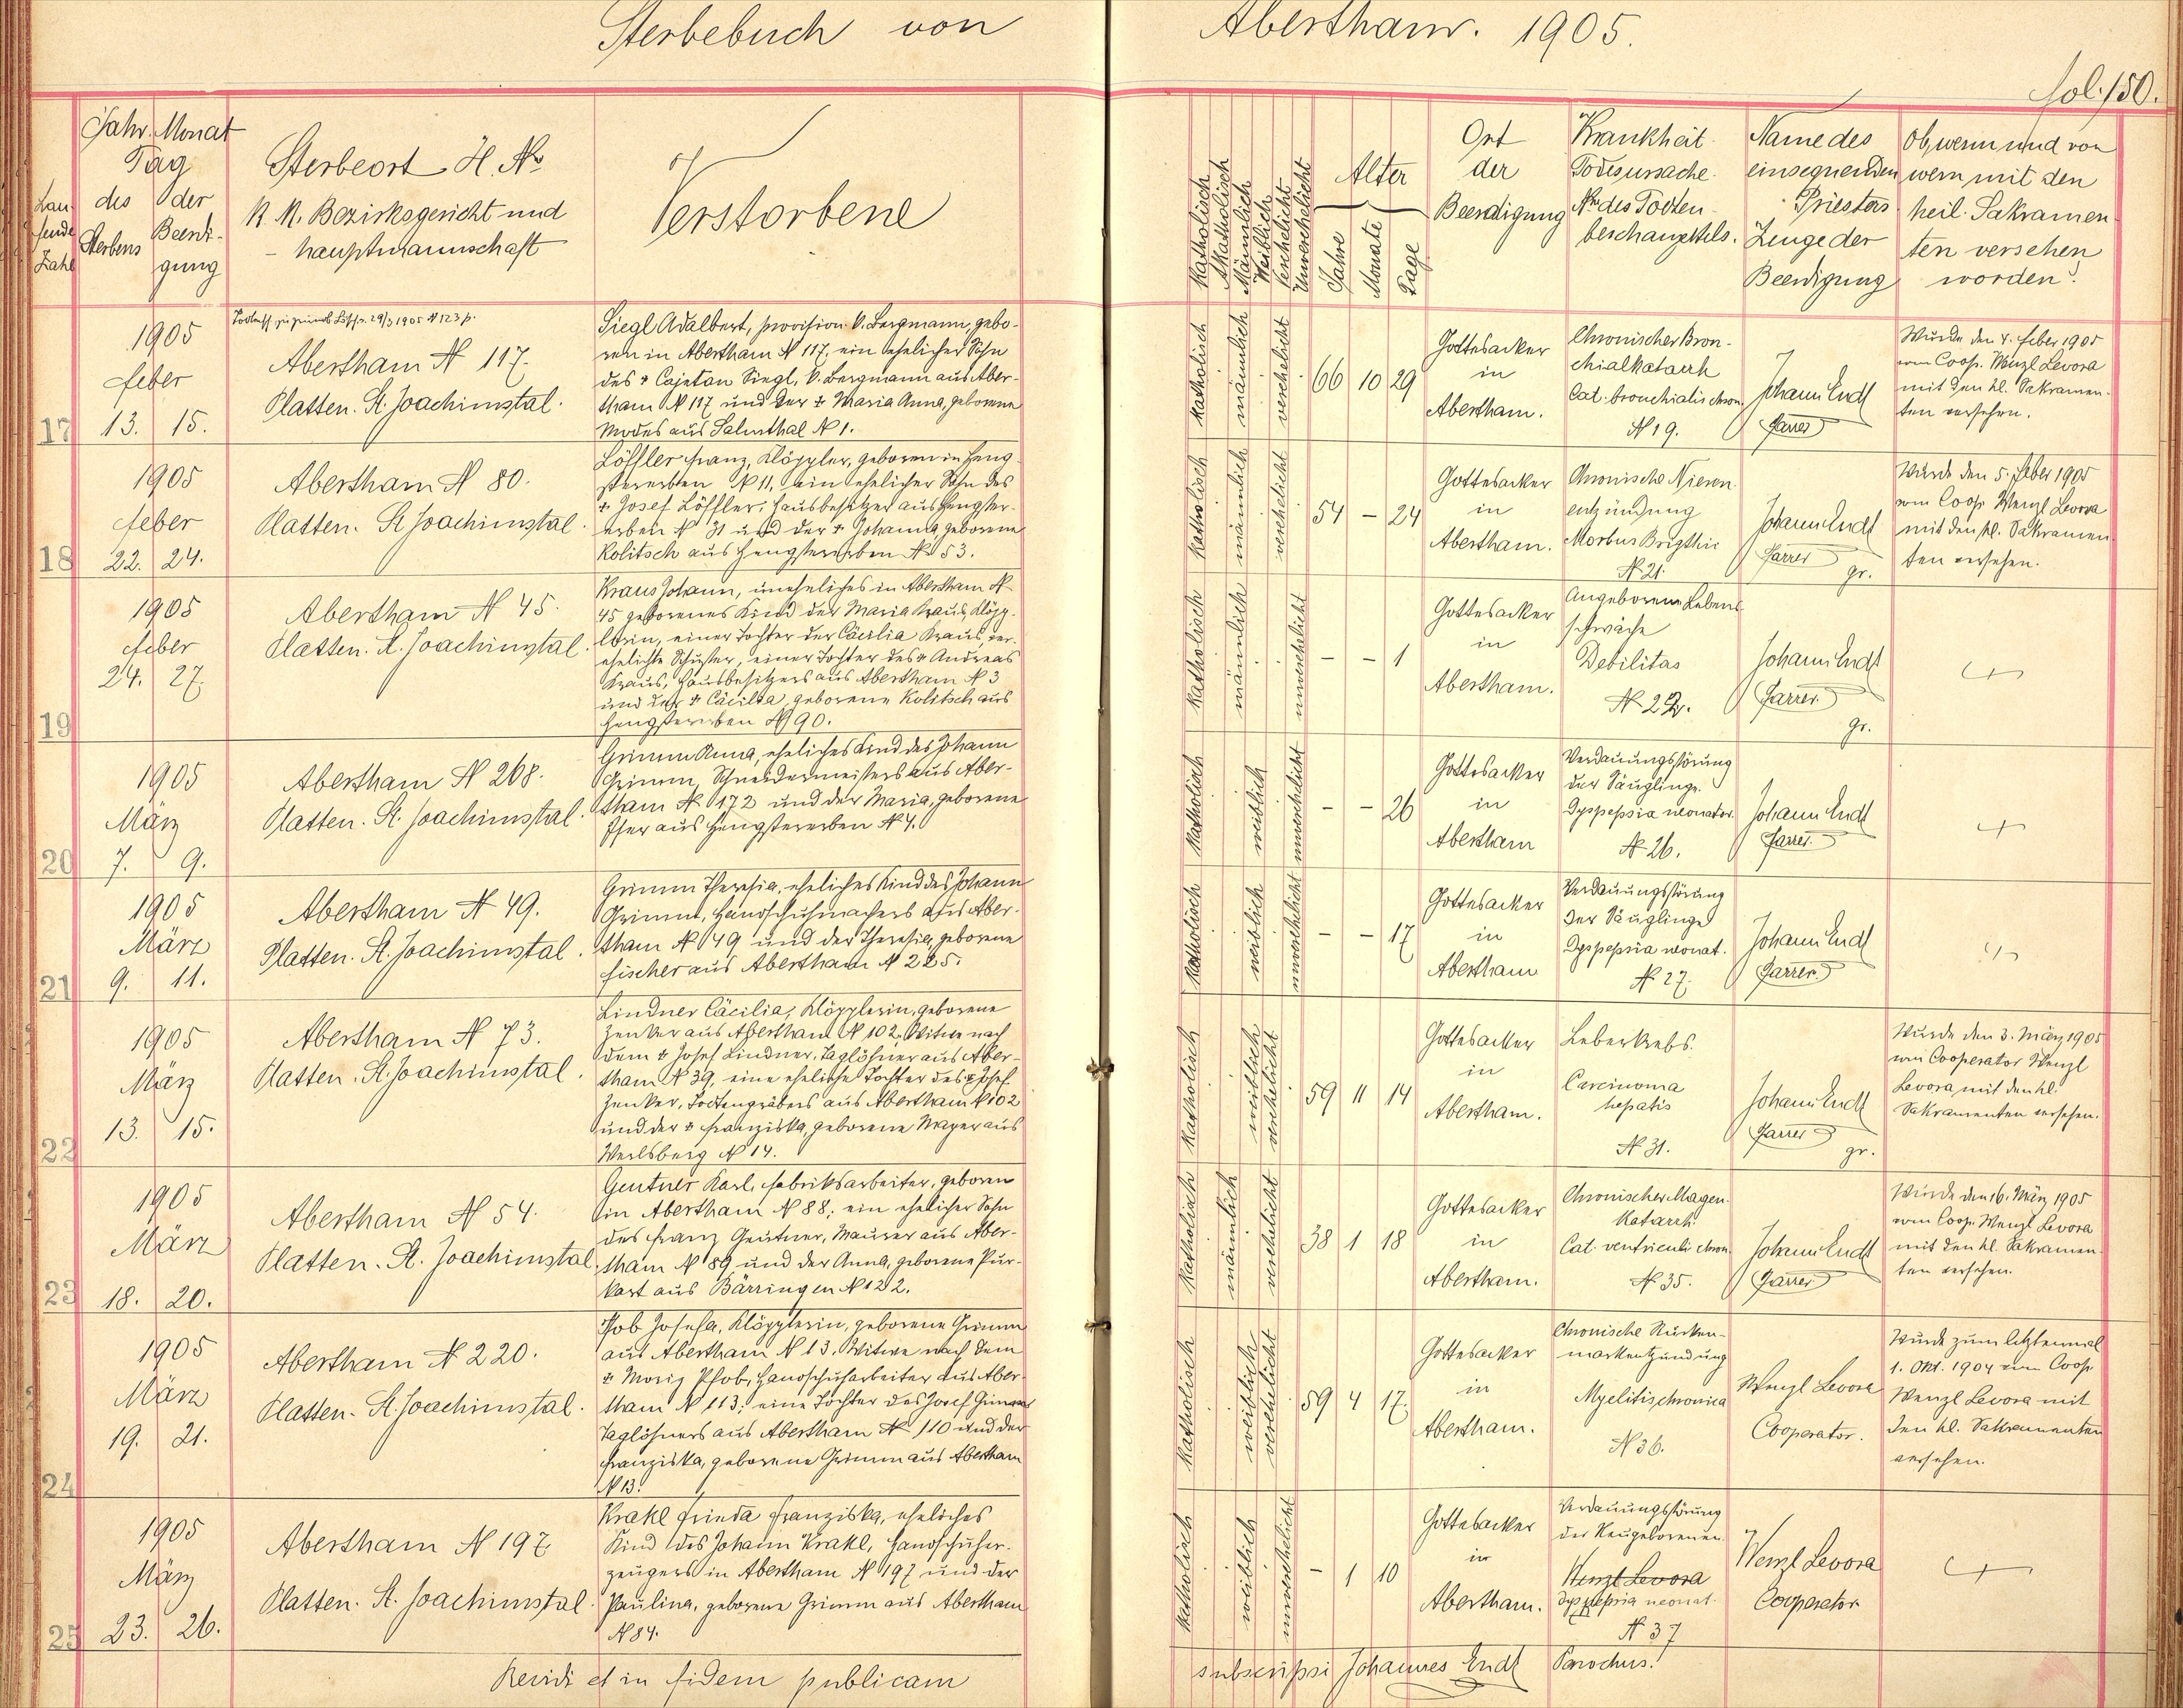 Sterbebuch von Abertham. 1905.
fol. 150.
Lau-
fende
Zahl
Jahr. Monat
Tag
des oder
Sterbens Beerdi-
gung
Sterbeort H. No
K. K. Bezirksgericht und
- hauptmannschaft
Verstorbene
Katholisch
Akatholisch
Männlich
Weiblich
Verehelicht
Unverehelicht
Alter
Jahre
Monate
Tage
Ort
der
Beerdigung
Krankheit
Todesursache.
No des Todten-
beschauzettels.
Name des
einsegnenden
Priesters
Zeuge der
Beerdigung
Ob, wenn und von
wem mit den
heil. Sakramen-
ten versehen
worden?
17
1905
Feber
13. 15.
Abertham N 117.
Platten. St. Joachimstal.
Siegl Adalbert, provision. k. Bergmann, gebo-
ren in Abertham N 117, ein ehelicher Sohn
des + Cajetan Siegl, k. Bergmann aus Aber-
tham N 117 und der + Maria Anna, geborene
Modes aus Salmthal N 1.
katholisch
männlich
verehelicht
66 10 29
Gottesacker
in
Abertham.
Chronischer Bron-
chialkatarrh
Cat. bronchialis chron.
N 19.
Johann Endt
Pfarrer
Wurde den 4. Feber 1905
vom Coop. Wenzl Levora
mit den hl. Sakramen-
ten versehen.
18
1905
Feber
22. 24.
Abertham N 80.
Platten. St Joachimstal.
Löffler Franz, Klöppler, geboren in Heng-
stererben N 11, ein ehelicher Sohn des
+ Josef Löffler, Hausbesitzer aus Hengster-
erben N 31 und der + Johanna, geborene
Kolitsch aus Hengstererben N 53.
katholisch
männlich
verehelicht
54 - 24
Gottesacker
in
Abertham.
Chronische Nieren-
entzündung
Morbus Brigthii
N 21.
Johann Endt
Pfarrer
gr.
Wurde den 5. Feber 1905
vom Coop. Wenzl Levora
mit den hl. Sakramen-
ten versehen.
19
1905
Feber
24. 27.
Abertham N 45.
Platten. St. Joachimstal.
Kraus Johann, uneheliches in Abertham N
45 geborenes Kind der Maria Kraus, Klöpp-
lerin, einer Tochter der Cäcilia Kraus, ver-
ehelichte Schuster, einer Tochter des + Andreas
Kraus, Hausbesitzers aus Abertham N 3
und der + Cäcilia, geborene Kolitsch aus
Hengstererben N 90.
katholisch
männlich
unverehelicht
- - 1
Gottesacker
in
Abertham.
Angeborene Lebens-
schwäche
Debilitas
N 22.
Johann Endt
Pfarrer.
gr.
20
1905
März
7. 9.
Abertham N 268.
Platten. St. Joachimstal.
Grimm Anna, eheliches Kind des Johann
Grimm, Schneidermeisters aus Aber-
tham N 172 und der Maria, geborene
aus Hengstererben N 4.
katholisch
weiblich
unverehelicht
- - 26
Gottesacker
in
Abertham
Verdauungsstörung
der Säuglinge.
Dyspepsia neonator.
N 26.
Johann Endt
Pfarrer.
21
1905
März
9. 11.
Abertham N 49.
Platten. St. Joachimstal.
Grimm Theresia, eheliches Kind des Johann
Grimm, Handschuhmachers aus Aber-
tham N 49 und der Theresia, geborene
Fischer aus Abertham N 225.
katholisch
weiblich
unverehelicht
- - 17
Gottesacker
in
Abertham
Verdauungsstörung
der Säuglinge
Dyspepsia neonat.
N 27.
Johann Endt
Pfarrer
22
1905
März
13. 15.
Abertham N 73.
Platten. St. Joachimstal.
Lindner Cäcilia, Klöpplerin, geborene
Zenker aus Abertham N 102, Witwe nach
dem + Josef Lindner, Taglöhner aus Aber-
tham N 39, eine eheliche Tochter des + Josef
Zenker, Todtengräbers aus Abertham N 102
und der + Franziska, geborene Mayer aus
Werlsberg N 14.
katholisch
weiblich
verehelicht
59 11 14
Gottesacker
in
Abertham.
Leberkrebs.
Carcinoma
hepatis
N 31.
Johann Endt
Pfarrer
gr.
Wurde den 3. März 1905
vom Cooperator Wenzl
Levora mit den hl.
Sakramenten versehen.
23
1905
März
18. 20.
Abertham N 54.
Platten. St. Joachimstal.
Geutner Karl, Fabriksarbeiter, geboren
in Abertham N 88; ein ehelicher Sohn
des Franz Geutner, Maurer aus Aber-
tham N 89 und der Anna, geborene Pur-
kart aus Bärringen N 122.
katholisch
männlich
verehelicht
38 1 18
Gottesacker
in
Abertham.
Chronischer Magen-
katarrh.
Cat. ventriculi chron.
N 35.
Johann Endt
Pfarrer
Wurde den 16. März 1905
vom Coop. Wenzl Levora
mit den hl. Sakramen-
ten versehen.
24
1905
März
19. 21.
Abertham N 220.
Platten. St. Joachimstal.
Pfob Josefa, Klöpplerin, geborene Grimm
aus Abertham N 13, Witwe nach dem
+ Moriz Pfob, Handschuharbeiter aus Aber-
tham N 113; eine Tochter des Josef Grimm
Taglöhners aus Abertham N 110 und der
Franziska, geborene Grimm aus Abertham
N 13.
katholisch
weiblich
verehelicht
59 4 17.
Gottesacker
in
Abertham.
Chronische Rücken-
markentzündung
Myelitis chronica
N 36.
Wenzl Levora
Cooperator.
Wurde zum letztenmal
1. Okt. 1904 vom Coop.
Wenzl Levora mit
den hl. Sakramenten
versehen.
25
1905
März
23. 26.
Abertham N 197.
Platten. St. Joachimstal.
Krakl Frieda Franziska, eheliches
Kind des Johann Krakl, Handschuher-
zeugers in Abertham N 197 und der
Paulina, geborene Grimm aus Abertham
N 84.
katholisch
weiblich
unverehelicht
- 1 10
Gottesacker
in
Abertham.
Verdauungsstörung
der Neugeborenen.
Wenzl Levora
Dyspepsia neonat.
N 37
Wenzl Levora
Cooperator
Revidi et in fidem publicam subscripsi Johannes Endt Parochus.